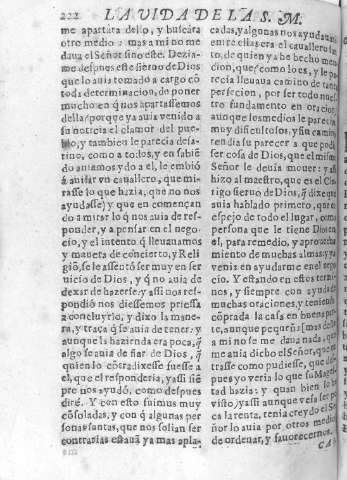 222 LA VIDA DE LA S. M.
me apartara dello, y buscara
otro medio: mas a mi no me
daua el Señor sino este. Dezia-
me despues este sieruo de Dios
que lo auia tomado a cargo cõ
toda determinacion, de poner
mucho en q̃ nos apartassemos
della: porque ya auia venido a
su noticia el clamor del pue-
blo, y tambien le parecia desa-
tino, como a todos, y en sabiẽ
do auiamos ydo a el, le embiò
à auisar vn cauallero, que mi-
rasse lo que hazia, que no nos
ayudasse) y que en començan
do a mirar lo q̃ nos auia de res-
ponder, y a pensar en el nego-
cio, y el intento q̃ lleuauamos
y manera de concierto, y Reli
giõ, se le assentò ser muy en ser
uicio de Dios, y q̃ no auia de
dexar de hazerse: y assi nos res-
pondiò nos diessemos priessa
a concluyrlo, y dixo la mane-
ra, y traça q̃ se auia de tener: y
aunque la hazienda era poca, q̃
algo se auia de fiar de Dios, q̃
quien lo cõtradixesse fuesse a
el, que el responderia, y assi siẽ
pre nos ayudò, como despues
dirè. Y con esto fuimus muy
cõsoladas, y con q̃ algunas per
sonas santas, que nos solian ser
contrarias estauã ya mas apla-
cadas, y algunas nos ayudauan
entre ellas era el cauallero san-
to, de quien ya he hecho men
cion, que (como lo es, y le pa-
recia lleuaua camino de tanta
perfecion, por ser todo nues-
tro fundamento en oracion
aunque los medios le parecian
muy dificultosos, y sin camino
rendia su parecer a que podia
ser cosa de Dios, que el mismo
Señor le deuia mouer: y assi
hizo al maestro, que es el Cle-
rigo sieruo de Dios, q̃ dixe que
auia hablado primero, que es
espejo de todo el lugar, como
persona que le tiene Dios en
el, para remedio, y aprouecha
miento de muchas almas, y ya
venia en ayudarme en el nego
cio. Y estando en estos termi-
nos, y siempre con ayuda de
muchas oraciones, y teniendo
cõprada la casa en buena par-
te, aunque pequeña [mas desto
a mi no se me daua nada, que
me auia dicho el Señor, que en
trasse como pudiesse, que des-
pues yo veria lo que su Magestad
hazia: y quan bien lo he
visto] y assi aunque veia ser po
ca la renta, tenia creydo el Se-
ñor lo auia por otros medios
de ordenar, y fauorecernos.
CA